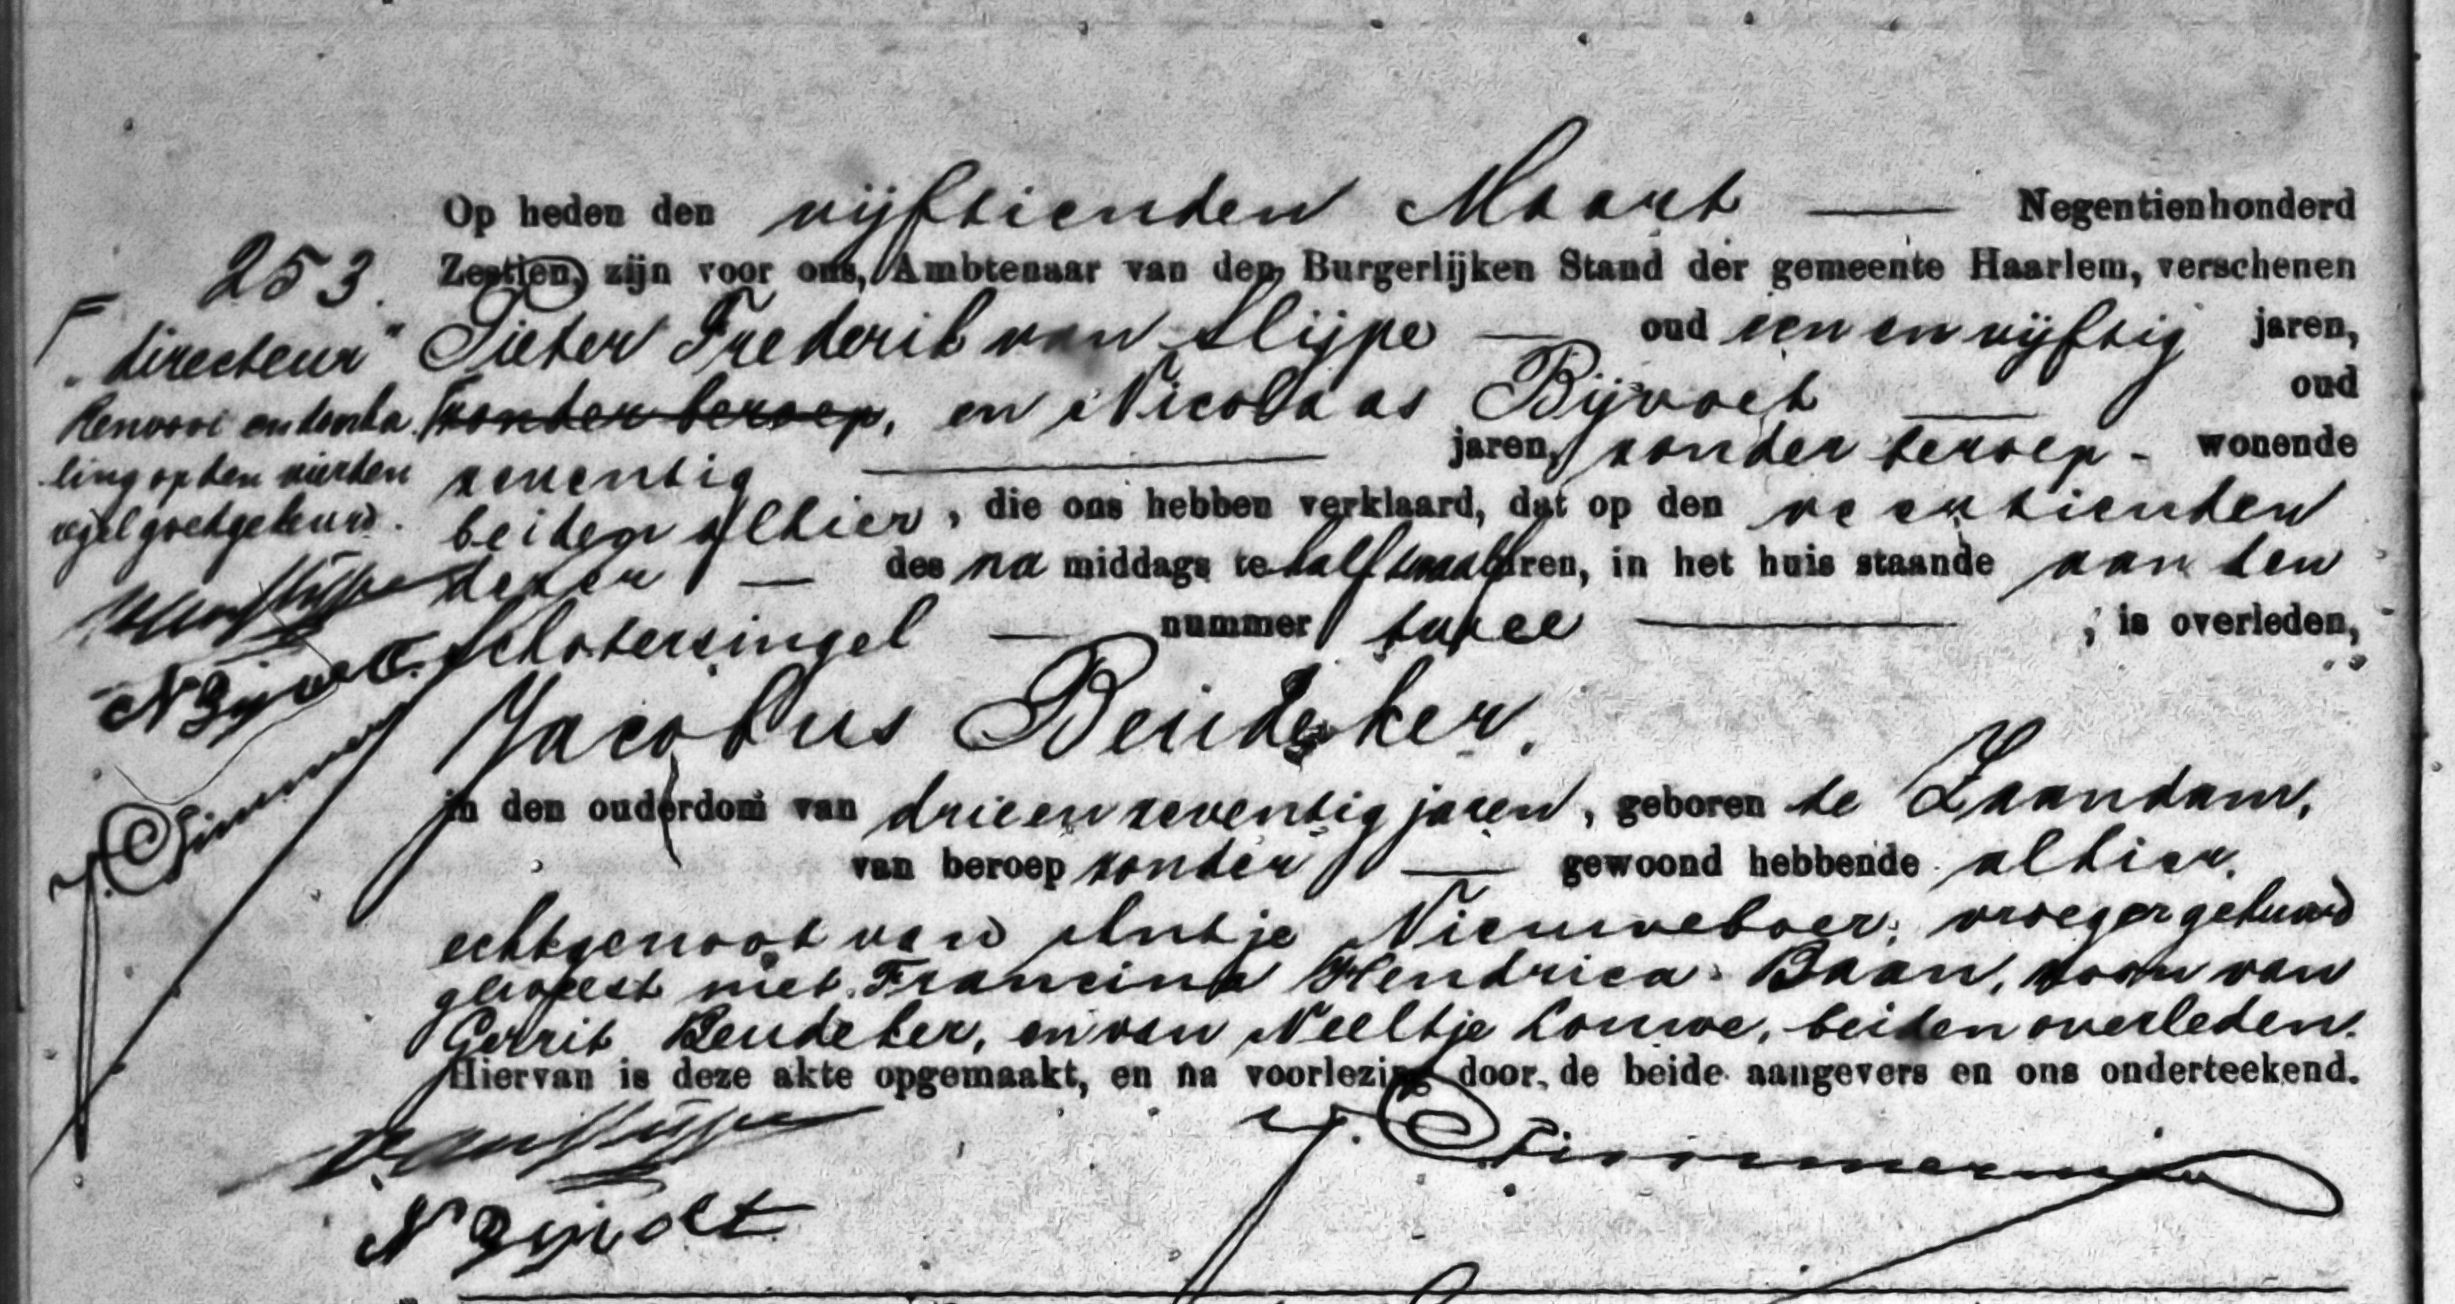 Op heden den vijftienden Maart — Negentienhonderd
253.
Zestien, zijn voor ons, Ambtenaar van den Burgerlijken Stand der gemeente Haarlem, verschenen
Pieter Frederik van Slijpe — oud een en vijftig jaren,
"directeur"
zonder beroep, en Nicolaas Bijvoet — oud
Renvooi en doorha
zeventig — jaren, zonder beroep - wonende
ling op den vierden
beiden alhier, die ons hebben verklaard, dat op den veertienden
regel goedgekeurd.
dezer — des na middags te half twaalf uren, in het huis staande aan den
van Slijpe
Schotersingel — nummer twee — , is overleden,
N Bijvoet.
Jacobus Beudeker.
in den ouderdom van drie en zeventig jaren, geboren te Zaandam,
van beroep zonder — gewoond hebbende alhier,
echtgenoot van Antje Nieuweboer, vroeger gehuwd
geweest met Francina Hendrica Baan, zoon van
Gerrit Beudeker, en van Neeltje Louwe, beiden overleden.
Hiervan is deze akte opgemaakt, en na voorlezing door de beide aangevers en ons onderteekend.
van Slijpe
N Bijvoet